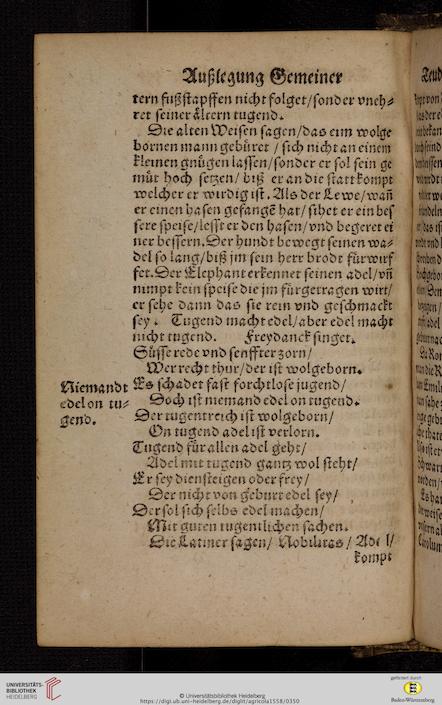 Außlegung Gemeiner
tern fußstapffen nicht folget/sonder vneh⸗
ret seiner ältern tugend.
Die alten Weisen sagen/das eim wolge
bornen mann gebüret / sich nicht an einem
kleinen gnügen lassen/sonder er sol sein ge
müt hoch setzen/ biß er an die statt kompt
welcher er wirdig ist. Als der Lewe/wañ
er einen hasen gefangẽ hat/ sihet er ein bes
sere speise/lesst er den hasen/vnd begeret ei
ner bessern. Der hundt bewegt seinen wa⸗
del so lang/biß jm sein herr brodt fürwirf
fet. Der Elephant erkennet seinen adel/vñ
nimpt kein speise die jm fürgetragen wirt/
er sehe dann das sie rein vnd geschmackt
sey. Tugend macht edel/aber edel macht
nicht tugend. Freydanck singet.
Süsse rede vnd senffter zorn/
Wer recht thur/der ist wolgeborn.
Niemandt
edel on tu⸗
gend.
Es schadet fast forchtlose jugend/
Doch ist niemand edel on tugend.
Der tugentreich ist wolgeborn/
On tugend adel ist verlorn.
Tugend für allen adel geht/
Adel mit tugend gantz wol steht/
Er sey dienst eigen oder frey/
Der nicht von geburt edel sey/
Der sol sich selbs edel machen/
Mit guten tugentlichen sachen.
Die Latiner sagen/ Nobilitas / Adel/
kompt
UNIVERSITÄTS-
BIBLIOTHEK
HEIDELBERG
© Universitätsbibliothek Heidelberg
https://digi.ub.uni-heidelberg.de/diglit/agricola1558/0350
gefördert durch
Baden-Württemberg